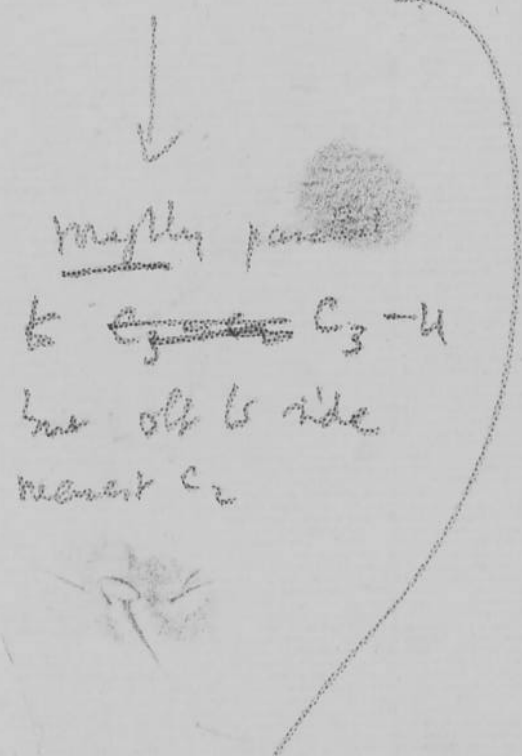 roughly parallel
to C₃ - H
but off to side
nearest C₂